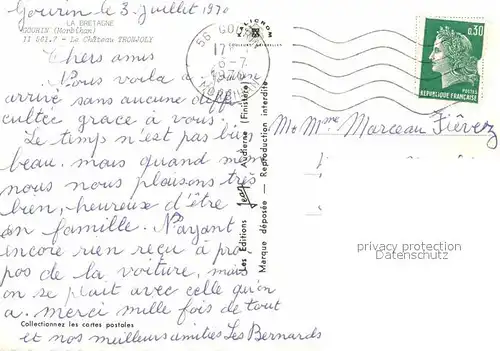 Gourin le 3 juillet 1970
LA BRETAGNE
GOURIN (Morbihan)
11 561.7 - Le Château TRONJOLY
Chers amis
Nous voila a Gourin
arrivé sans aucune diffi-
cultée grace a vous.
Le temps n'est pas bien
beau. mais quand même
nous nous plaisons très
bien, heureuse d'être
en famille. N'ayant
encore rien reçu à pro-
pos de la voiture, mais
on se plait avec celle qu'on
a. merci mille fois de tout
Collectionnez les cartes postales
et nos meilleurs amities Les Bernards
56 GOU
17H
6-7
1970
MORBIHAN
Les Éditions Jean Audierne (Finistère)
Marque déposée — Reproduction interdite
0,30
POSTES
REPUBLIQUE FRANÇAISE
M & Mme Marceau Fiévez
privacy protection
Datenschutz